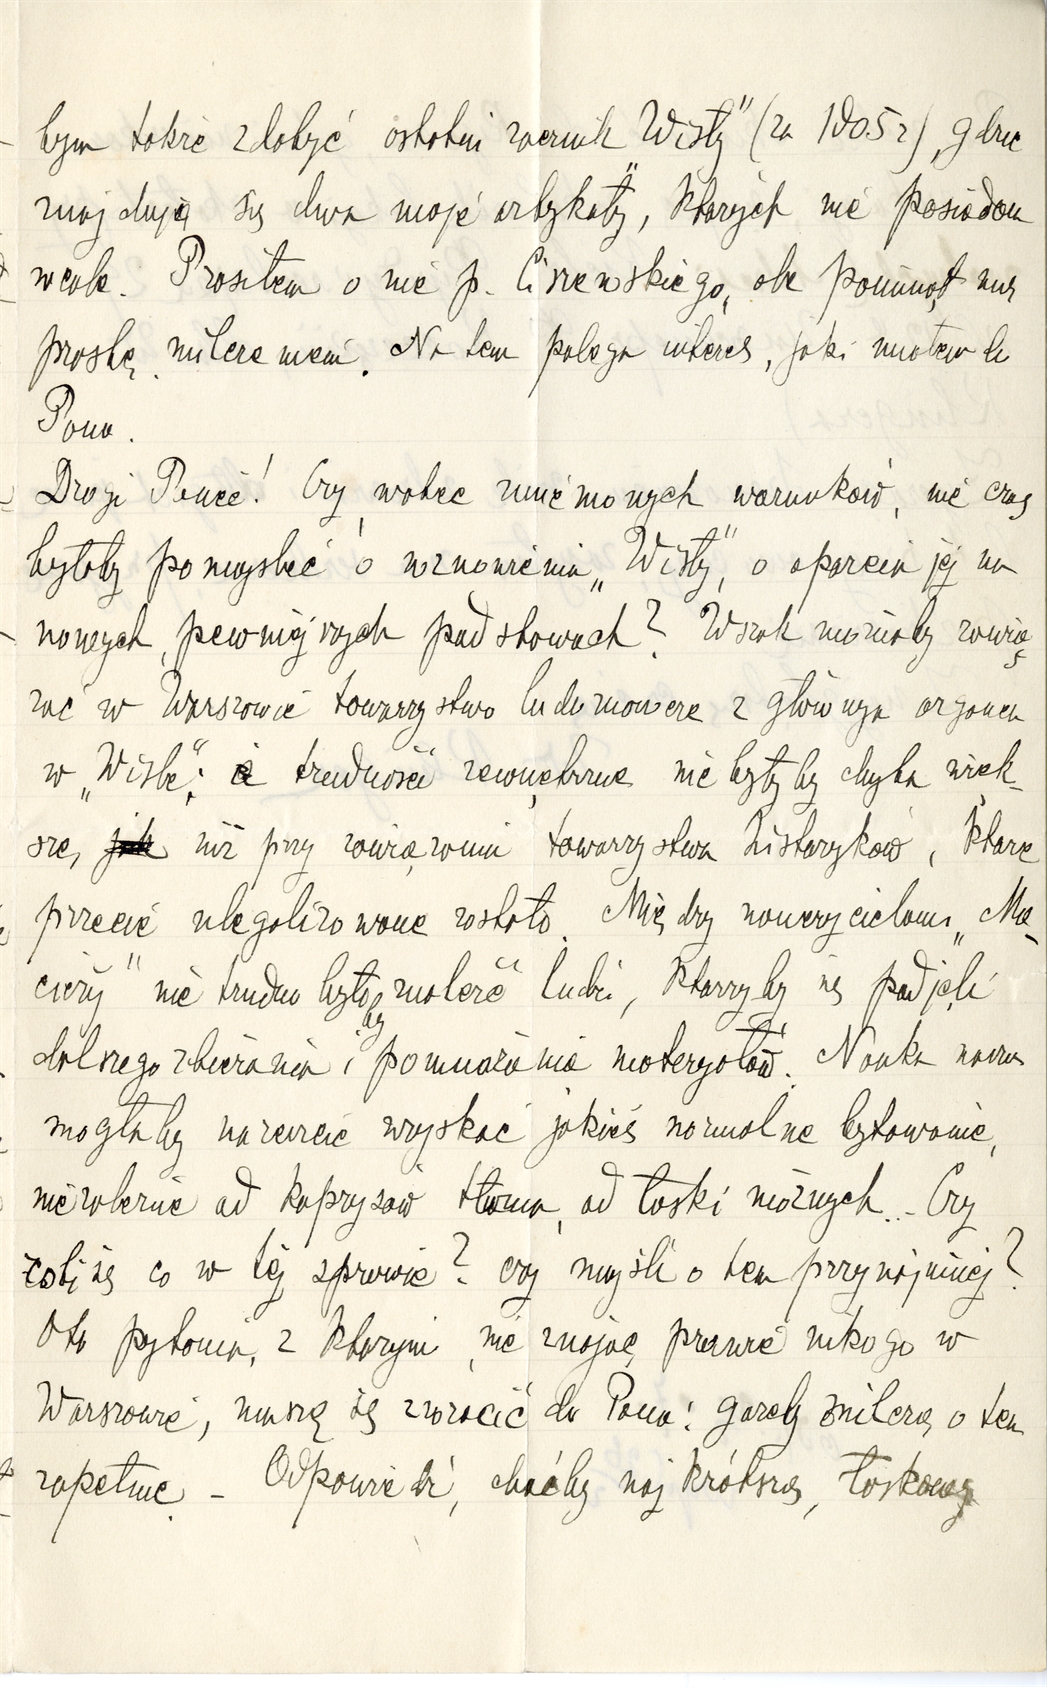 bym także zdobyć ostatni rocznik „Wisły” (za 1905 r), gdzie
znajdują się dwa moje artykuły, których nie posiadam
wcale. Prosiłem o nie p. Ciszewskiego, ale pominął mą
prośbę milczeniem. Na tem polega interes, jaki miałem do
Pana.
Drogi Panie! Czy wobec zmienionych warunków, nie czas
byłoby pomyśleć o wznowieniu „Wisły”, o oparciu jej na
nowych, pewniejszych podstawach? Wszak możnaby zawią
zać w Warszawie towarzystwo ludoznawcze z głównym organem
w „Wiśle”; a trudności zewnętrzne nie byłyby chyba więk-
sze, jak niż przy zawiązaniu towarzystwa historyków, które
przecie ulegalizowane zostało. Między nauczycielami „Ma-
cierzy” nie trudno byłoby znaleźć ludzi, którzyby się podjęli
dalszego zbierania i pomnażania materyałów. Nauka nasza
mogłaby nareszcie uzyskać jakieś normalne bytowanie,
niezależne od kaprysów tłumu, od łaski możnych. - Czy
robi się co w tej sprawie? czy myśli o tem przynajmniej?
Oto pytania, z którymi, nie znając prawie nikogo w
Warszawie, muszę się zwrócić do Pana: gazety milczą o tem
zupełnie. - Odpowiedź, choćby najkrótszą, łaskawą